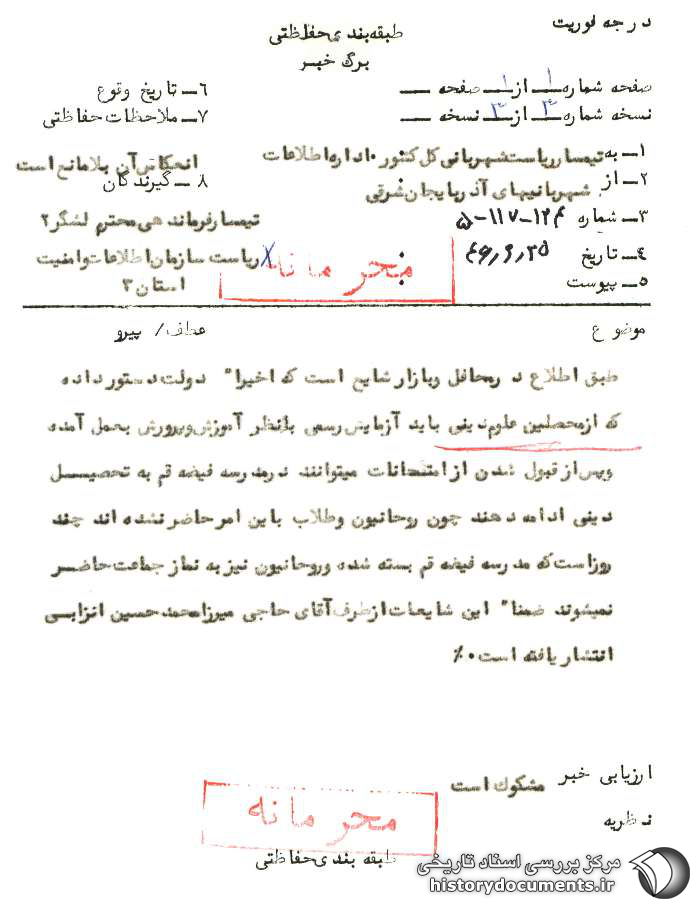 درجه فوریت
طبقه‌بندی حفاظتی
برگ خبر
صفحه شماره ۱ از ۱ صفحه
نسخه شماره ۳ از ۳ نسخه
۱ـ به تیمسار ریاست شهربانی کل کشور ۰ اداره اطلاعات
۲ـ از شهربانیهای آذربایجان شرقی
۳ـ شماره ۱۲۴-۱۱۷-۵
۴ـ تاریخ ۴۶٫۶٫۲۵
۵ـ پیوست
۶ـ تاریخ وقوع
۷ـ ملاحظات حفاظتی
انعکاس آن بلامانع است
۸ـ گیرندگان
تیمسار فرماندهی محترم لشگر ۲
ریاست سازمان اطلاعات وامنیت
استان ۳
محرمانه
موضوع
عطف/ پیرو
طبق اطلاع در محافل وبازار شایع است که اخیرا" دولت دستور داده
که از محصلین علوم دینی باید آزمایش رسمی بانظر آموزش وپرورش بعمل آمده
وپس از قبول شدن از امتحانات میتوانند در مدرسه فیضه قم به تحصیل
دینی ادامه دهند چون روحانیون وطلاب باین امر حاضر نشده اند چند
روز است که مدرسه فیضه قم بسته شده وروحانیون نیز به نماز جماعت حاضر
نمیشوند ضمنا" این شایعات از طرف آقای حاجی میرزا محمد حسین انزابی
انتشار یافته است ۰٪
ارزیابی خبر مشکوک است
نظریه
محرمانه
طبقه بندی حفاظتی
مرکز بررسی اسناد تاریخی
historydocuments.ir